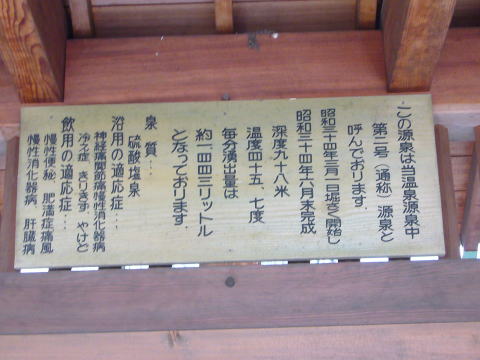 この源泉は当温泉源泉中
第二号（通称）源泉と
呼んでおります。
昭和三十四年三月一日堀さく開始し
昭和三十四年六月末完成
深度九十八米
温度四十五、七度
毎分湧出量は
約一四四三リットル
となっております。
泉質…
硫酸塩泉
浴用の適応症…
神経痛関節痛慢性消化器病
冷え症 きりきず やけど
飲用の適応症…
慢性便秘 肥満症痛風
慢性消化器病 肝臓病